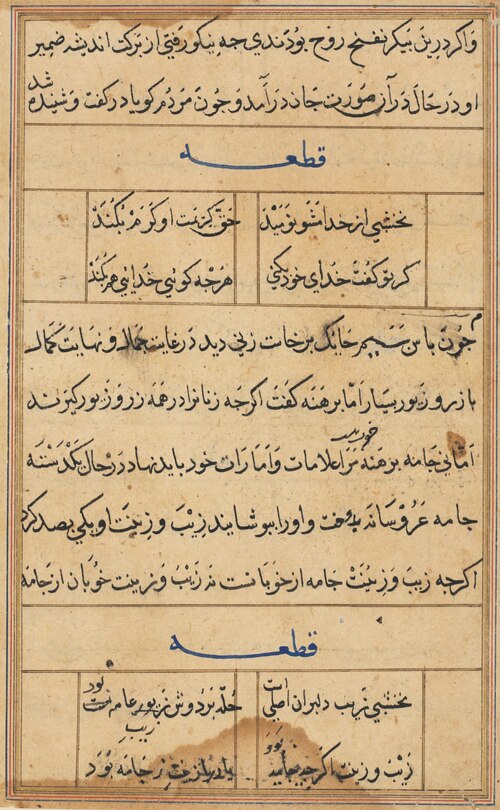 واگر درین پیکر نفخ روح بودندی چه نیکو رفتی از برکت اندیشه ضمیر
او در حال در آن صورت جان درآمد و چون مردم گویا در گفت و شنیده شد
قطعه
نخشبی از خدا مشو نومید حق کرمت او کرم بکند
گر تو گفت خدای خود بکنی هرچه گوئی خدایی هم بکند
چون پاس سیم زنی دید در غایت جمال و نهایت کمال
با زر و زیور بسیار اما برهنه گفت اگرچه زنانرا در همه زر و زیور
جامه برهنه مرا علامات و امارات خود باید نهاد در حال یکدسته
جامه عروسانه بدوخت و او را بپوشانید زیب و زینت او یکی بصد کرد
اگرچه زیب و زینت جامه از خوبانست نه زیب و زینت خوبان از جامه
قطعه
نخشبی زیب دلبران اصلیات حله بر دوش زیور عامه است
زیب و زینت اگرچه جامه بود زینت ز جامه بود